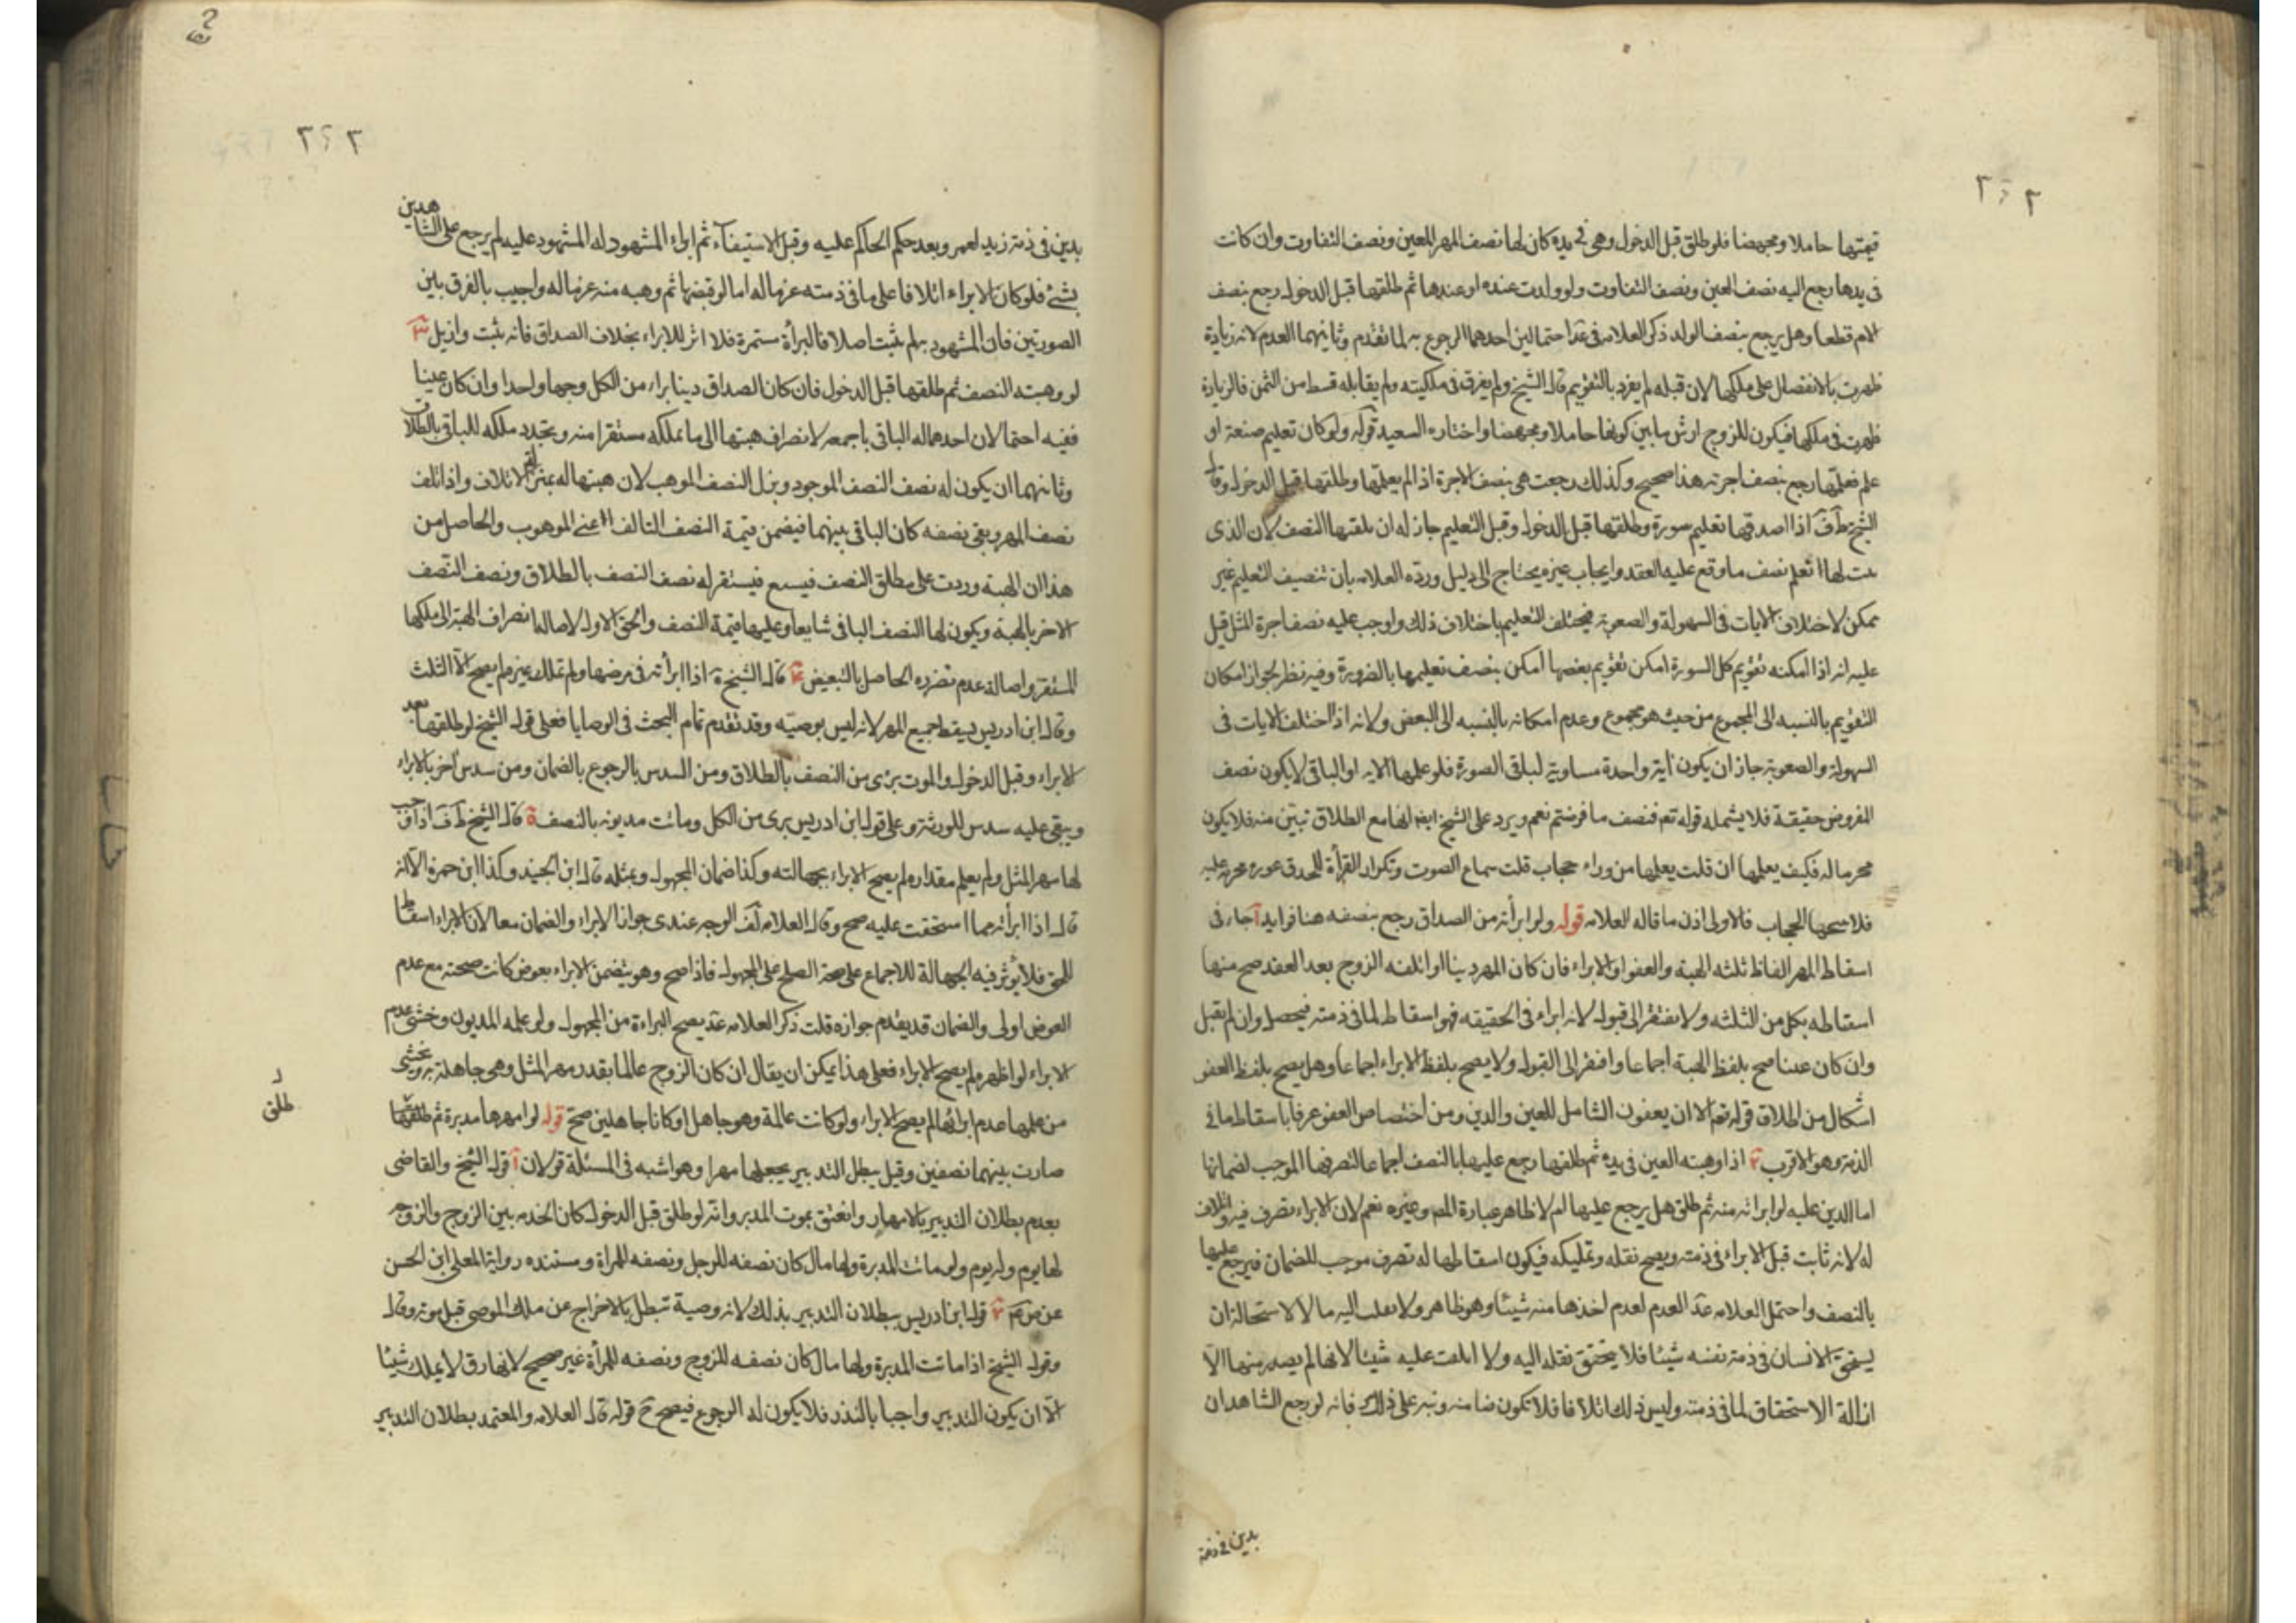 قيمتها حاملا ومجهضا فلو طلق قبل الدخول وهى فى يده كان لها نصف المهر المعين ونصف التفاوت وان كانت
فى يدها رجع اليه نصف العين ونصف التفاوت ولو ولدت عنده او عندها ثم طلقها قبل الدخول رجع بنصف
الام قطعا وهل يرجع بنصف الولد ذكر العلامه فى عد احتمالين احدهما الرجوع به لما تقدم وثانيهما العدم لانه زيادة
ظهرت بالانفصال على ملكها لان قبله لم يفرد بالتقويم قال الشيخ ولم يفرق فى ملكيته ولم يقابله قسط من الثمن فالزيادة
ظهرت فى ملكها فيكون للزوج ارش ما بين كونها حاملا ومجهضا واختاره السعيد قوله ولو كان تعليم صنعة او
علم فعلمها رجع بنصف اجرته هذا صحيح وكذلك رجعت هى بنصف الاجرة اذا لم يعلمها وطلقها قبل الدخول وقال
الشيخ ط ف اذا اصدقها تعليم سورة وطلقها قبل الدخول وقبل التعليم جاز له ان يلقنها النصف لان الذى
لها تعلم نصف ما وقع عليه العقد وايجاب غيره يحتاج الى دليل وردّه العلامه بان تنصيف التعليم غير
ممكن لاختلاف الايات فى السهولة والصعوبة فيختلف التعليم باختلاف ذلك واوجب عليه نصف اجرة المثل قيل
عليه انه اذا امكنه تقويم كل السورة امكن تقويم بعضها امكن بنصف تعليمها بالضرورة وفيه نظر لجواز امكان
التقويم بالنسبه الى المجموع من حيث هو مجموع وعدم امكانه بالنسبه الى البعض ولانه اذا اختلف الايات فى
السهولة والصعوبة جاز ان يكون اية واحدة مساوية لباقى الصورة فلو علمها الايه او الباقى لا يكون نصف
المفروض حقيقة فلا يشمله قوله تع فنصف ما فرضتم نعم ويرد على الشيخ ايضا انها مع الطلاق تبين منه فلا يكون
محرما له فكيف يعلمها ان قلت يعلمها من وراء حجاب قلت سماع الصوت وتكرار القرأة عورة محرمة عليه
الحجاب فالاولى اذن ما قاله العلامه قوله ولو ابرأته من الصداق رجع بنصفه هنا فوايد آ جاء فى
اسقاط المهر الفاظ ثلثه الهبة والعفو والابراء فان كان المهر دينا او اتلفه الزوج بعد العقد صح منها
اسقاطه بكل من الثلثه ولا يفتقر الى قبول لانه ابراء فى الحقيقه فهو اسقاط لما فى ذمته فيحصل وان لم يقبل
وان كان عينا صح بلفظ الهبة اجماعا وافتقر الى القبول ولا يصح بلفظ الابراء اجماعا وهل يصح بلفظ العفو
اشكال من اطلاق قوله تعم الا ان يعفون الشامل للعين والدين ومن اختصاص العفو عرفا باسقاط ما فى
الذمة وهو الاقرب ٢ اذا وهبته العين فى يده ثم طلقها رجع عليها بالنصف اجماعا لتصرفها الموجب لضمانها
اما الدين عليه لو ابرأته منه ثم طلق هل يرجع عليها ام لا ظاهر عبارة المص وغيره نعم لان الابراء تصرف فيه واتلاف
له لانه ثابت قبل الابراء فى ذمته ويصح نقله وتمليكه فيكون اسقاطها له تصرف موجب للضمان فيرجع عليها
بالنصف واحتمل العلامه عد العدم لعدم اخذها منه شيئا وهو ظاهر ولا نقلت اليه مالا لاستحالة ان
يستحق الانسان فى ذمة نفسه شيئا فلا يتحقق نقله اليه ولا اتلفت عليه شيئا لانها لم يصدر منها الّا
ازالة الاستحقاق لما فى ذمته وليس ذلك اتلافا فلا تكون ضامنه ونبه على ذلك فانه لو رجع الشاهدان
بدين فى ذمة
بدين فى ذمة زيد لعمر وبعد حكم الحاكم عليه وقبل الاستيفاء ثم ابراء المشهود له المشهود عليه لم يرجع على الشاهدين
بشئ فلو كان الابراء اتلافا على ما فى ذمته غرما له اما لو قبضها ثم وهبه منه غرما له واجيب بالفرق بين
الصورتين فان المشهود به لم يثبت اصلا فالبرأة مستمرة فلا اثر للابراء بخلاف الصداق فانه ثبت وازيل ٣
لو وهبته النصف ثم طلقها قبل الدخول فان كان الصداق دينا براء من الكل وجها واحدا وان كان عينا
ففيه احتمالان احدهما له الباقى باجمعه لانصراف هبتها الى ما تملكه مستقرا منه ويتجدد ملكه للباقى بالطلاق
وثانيهما ان يكون له نصف النصف الموجود وبدل النصف الموهب لان هبتها له بمنزلة الاتلاف واذا تلف
نصف المهر وبقى نصفه كان الباقى بينهما فيضمن قيمة النصف التالف اعنى الموهوب والحاصل من
هذا ان الهبة وردت على مطلق النصف فيستقر له نصف النصف بالطلاق ونصف النصف
الاخر بالهبة ويكون لها النصف الباقى شايعا وعليها قيمة النصف والحق الاول لاصالة انصراف الهبة الى ملكها
المستقر واصالة عدم تضرره الحاصل بالتبعيض ٤ قال الشيخ ة اذا ابرأته فى مرضها ولم تملك غيره لم يصح الّا الثلث
وقال ابن ادريس يسقط جميع المهر لانه ليس بوصيّه وقد تقدم تمام البحث فى الوصايا فعلى قول الشيخ لو طلقها بعد
الابراء وقبل الدخول والموت برئ من النصف بالطلاق ومن السدس بالرجوع بالضمان ومن سدس آخر بالابراء
ويبقى عليه سدس للورثة وعلى قول ابن ادريس برى من الكل وماتت مديونه بالنصف ة قال الشيخ ط ف اذا وجب
لها مهر المثل ولم يعلم مقداره لم يصح الابراء بجهالته وكذا ضمان المجهول وبمثله قال ابن الجنيد وكذا ابن حمزة الّا انه
قال اذا ابرأته مما استحقت عليه صح وقال العلامه لف الوجه عندى جواز الابراء والضمان معا لان الابراء اسقاط
للحق فلا يؤثر فيه الجهالة للاجماع على صحة الصلح على المجهول فاذا صح وهو يتضمن الابراء بعوض كانت صحته مع عدم
العوض اولى والضمان قد يقدم جوازه قلت ذكر العلامه عد يصح البراءة من المجهول ولو علمه المديون وخشى عدم
الابراء لو اظهره لم يصح الابراء فعلى هذا يمكن ان يقال ان كان الزوج عالما بقدر مهر المثل وهى جاهلة به ويخشى
من علمها عدم ابرائها لم يصح الابراء ولو كانت عالمة وهو جاهل او كانا جاهلين صح قوله لو امهرها مدبرة ثم طلقها
طلق
صارت بينهما نصفين وقيل يبطل التدبير بجعلها مهرا وهو اشبه فى المسئلة قولان آ قول الشيخ والقاضى
بعدم بطلان التدبير بالامهار وانعتق بموت المدبر وانّه لو طلق قبل الدخول كان الخدمه بين الزوج والزوجه
لها يوم وله يوم ولو ماتت المدبرة ولها مال كان نصفه للرجل ونصفه للمرأة ومستنده رواية المعلى ابن الحسن
عن ص م ٢ قول ابن ادريس ببطلان التدبير بذلك لانه وصية تبطل بالاخراج عن ملك الموصى قبل موته وقال
وقول الشيخ اذا ماتت المدبرة ولها مال كان نصفه للزوج ونصفه للمرأة غير صحيح لانها رق لا يملك شيئا
الّا ان يكون التدبير واجبا بالنذر فلا يكون له الرجوع فيصح ح قوله قال العلامه والمعتمد بطلان التدبير